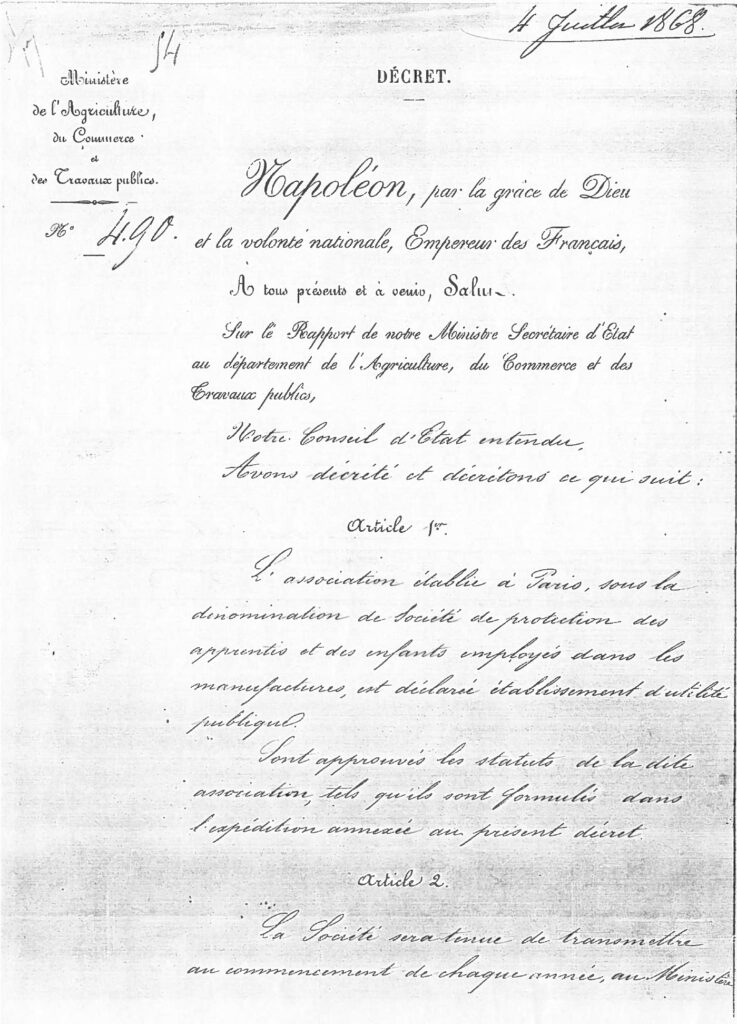 4 Juillet 1868.
54
Ministère
de l'Agriculture,
du Commerce
et
des Travaux publics.
N° 490.
DÉCRET.
Napoléon, par la grâce de Dieu
et la volonté nationale, Empereur des Français,
A tous présents et à venir, Salut.
Sur le Rapport de notre Ministre Secrétaire d'Etat
au département de l'Agriculture, du Commerce et des
Travaux publics,
Notre Conseil d'Etat entendu,
Avons décrété et décrétons ce qui suit :
Article 1er.
L'association établie à Paris, sous la
dénomination de Société de protection des
apprentis et des enfants employés dans les
manufactures, est déclarée établissement d'utilité
publique.
Sont approuvés les statuts de la dite
association, tels qu'ils sont formulés dans
l'expédition annexée au présent décret.
Article 2.
La Société sera tenue de transmettre
au commencement de chaque année, au Ministère